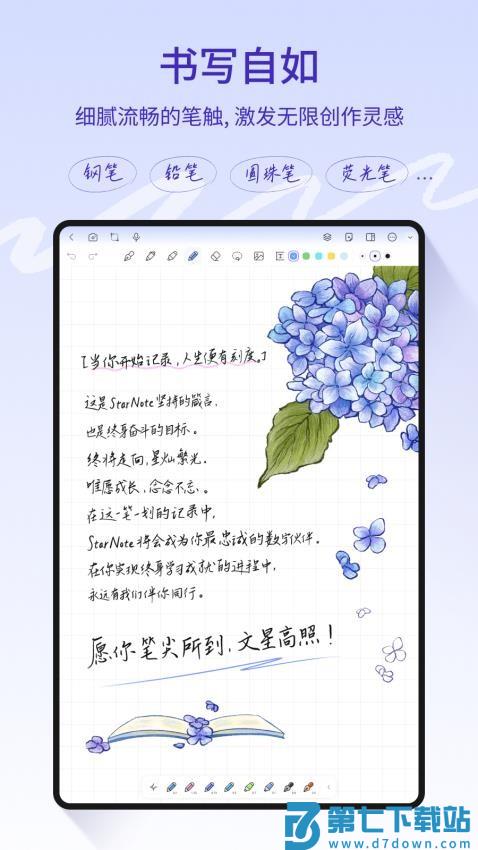 书写自如
细腻流畅的笔触, 激发无限创作灵感
钢笔 铅笔 圆珠笔 荧光笔 ...
[当你开始记录,人生便有刻度。]
这是StarNote坚持的箴言,
也是终身奋斗的目标。
终将走向,星灿繁光.
唯愿成长,念念不忘.。
在这一笔一划的记录中,
StarNote将会成为你最忠诚的数字伙伴。
在你实现终身学习成就的进程中,
永远有我们伴你同行。
愿你笔尖所到,文星高照!
第七下载站
www.d7down.com